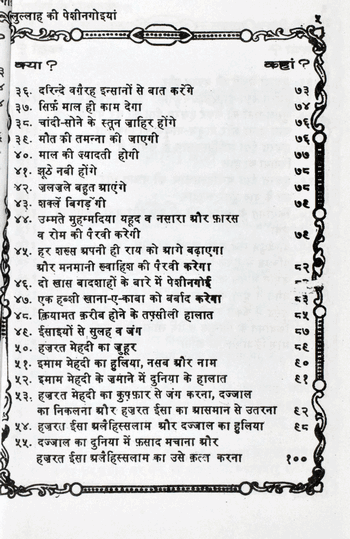 लुल्लाह की पेशीनगोइयां ५
क्या ? कहां ?
३६. दरिन्दे वग़ैरह इन्सानों से बात करेंगे ७३
३७. सिर्फ़ माल ही काम देगा ७४
३८. चांदी-सोने के स्तून ज़ाहिर होंगे ७६
३९. मौत की तमन्ना की जाएगी ७६
४०. माल की ज़्यादती होगी ७७
४१. झूठे नबी होंगे ७८
४२. ज़लज़ले बहुत आएंगे ७८
४३. शक्लें बिगड़ेंगी ७९
४४. उम्मते मुहम्मदिया यहूद व नसारा और फ़ारस
व रोम की पैरवी करेगी ७९
४५. हर शख़्स अपनी ही राय को आगे बढ़ाएगा
और मनमानी ख्वाहिश की पैरवी करेगा ८२
४६. दो ख़ास बादशाहों के बारे में पेशीनगोई
४७. एक हब्शी ख़ाना-ए-काबा को बर्बाद करेगा ८३
४८. क़ियामत क़रीब होने के तफ़्सीली हालात ८५
४९. ईसाइयों से सुलह व जंग ८७
५०. हज़रत मेहदी का ज़ुहूर ८९
५१. इमाम मेहदी का हुलिया, नसब और नाम ९०
५२. इमाम मेहदी के ज़माने में दुनिया के हालात ९१
५३. हज़रत मेहदी का कुफ़्फ़ार से जंग करना, दज्जाल
का निकलना और हज़रत ईसा का आसमान से उतरना ९२
५४. हज़रत ईसा अलैहिस्सलाम और दज्जाल का हुलिया ९८
५५. दज्जाल का दुनिया में फ़साद मचाना और
हज़रत ईसा अलैहिस्सलाम का उसे क़त्ल करना १००